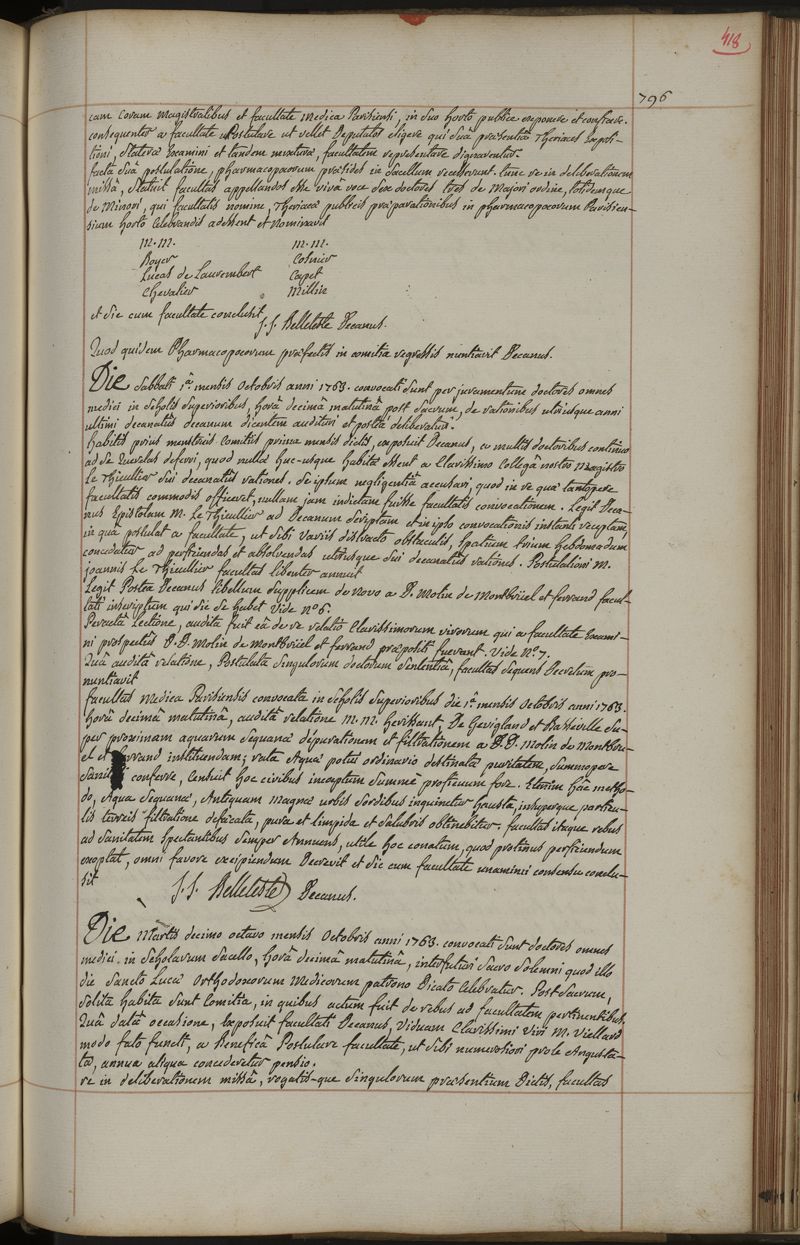 418
796
eam Coram magistralibus et facultate medica Parisiensi, in suo horto publice exponere et conficere.
consequenter a facultate Postulare ut vellet Deputatos eligere qui suâ præsentiâ Theriaces Exposi-
tioni, staterâ Examini et tandem mixturæ, facultatem repræsentare dignarentur.
facta suâ postulatione, pharmacopoeorum præfides in sacellum recesserunt. tunc re in deliberationem
missâ, Statuit facultas appellandos esse vivâ voce sex doctores tres de Majori ordine, totidemque
de Minori, qui facultatis nomine, Theriacæ publicis præparationibus in pharmacopoeorum Parisien-
sium horto Celebrandis adessent et Nominavit
M.M. M.M.
Boyer Cosnier
Lucas de Laurembert Capet
Chevalier Millin
et sic cum facultate conclusit
J. J. Belleteste Decanus.
Quod quidem Pharmacopoeorum præfectis in comitia regressis nuntiavit Decanus.
Die Sabbati 1ª mensis Octobris anni 1763. convocati sunt per juramentum doctores omnes
medici in scholis superioribus, horâ decimâ matutinâ post sacrum, de rationibus utriusque anni
ultimi decanatus decanum dicentem audituri et posteâ deliberaturi.
habitis prius menstruis Comitiis prima mensis dictis, exposuit Decanus, a multis doctoribus continuo
ad se querelas deferri, quod nulla huc-usque habita essent a Clarissimo Collegâ nostro Magistro
Le Thieullier sui decanatus rationes. se ipsum negligentiâ accusari, quod in re quæ tantopere
facultatis commodis officeret, nullam jam indictam fuisse facultatis convocationem. Legit Deca-
nus Epistolam M. Le Thieullier ad Decanum scriptam et in ipso convocationis instanti receptam,
in quâ postulat a facultate, ut sibi variis distracto obstaculis, spatium trium hebdomadum
concedatur ad perficiendas et absolvendas utriusque sui decanatus rationes. Postulationi M.
joannis Le Thieullier facultas libenter annuit
Legit Postea Decanus libellum supplicem de novo a D. Molin de Montbrüel et ferrand facul-
tati inscriptum qui sic se habet Vide N° 6.
Peractâ Lectione, audita fuit eâ de re relatio Clarissimorum virorum qui a facultate Exami-
ni prospectûs D.D. Molin de Montbrüel et ferrand præpositi fuerant. Vide N° 7.
Quâ auditâ relatione, Postulata singulorum doctorum sententiâ, facultas sequens Decretum pro-
nuntiavit
facultas Medica Parisiensis convocata in scholis superioribus die 1ª mensis Octobris anni 1763.
horâ decimâ matutinâ, auditâ relatione M.M. herissant, De Gevigland et Basseville su-
per proximam aquarum sequanæ depurationem et filtrationem a D.D. Molin de Montbru-
el et ferrand instituendam; rata Aquæ potui ordinario destinatæ puritatem, summopere
sanitati conferre, Censuit hoc civibus inceptum summè proficuum fore. Etenim hac metho-
do, Aqua sequana, Antequam magnæ urbis sordibus inquinetur hausta, insuperque particu-
lis terreis filtratione defæcata, pura et limpida et salubris obtinebitur. facultas itaque rebus
ad sanitatem spectantibus semper Annuens, utile hoc conatum, quod protinus perficiendum
exoptat, omni favore excipiendum Decrevit et sic cum facultate unanimi consensu conclu-
sit
J. J. Belleteste Decanus.
Die Martis decimo octavo mensis Octobris anni 1763. convocati sunt doctores omnes
medici, in scholarum sacello, horâ decimâ matutinâ, interfuturi sacro solemni quod illo
die sancto Lucæ Orthodoxorum Medicorum patrono Dicato Celebratur. Post sacrum,
solita habita sunt Comitia, in quibus actum fuit de rebus ad facultatem pertinentibus.
Quâ datâ occasione, Exposuit facultati Decanus, viduam Clarissimi viri M. Viellard
modo fato functi, a Beneficâ Postulare facultate, ut sibi numerosiori prole Angusta-
ta, annua aliqua concederetur pensio.
re in deliberationem missâ, rogatis-que singulorum præsentium Dictis, facultas